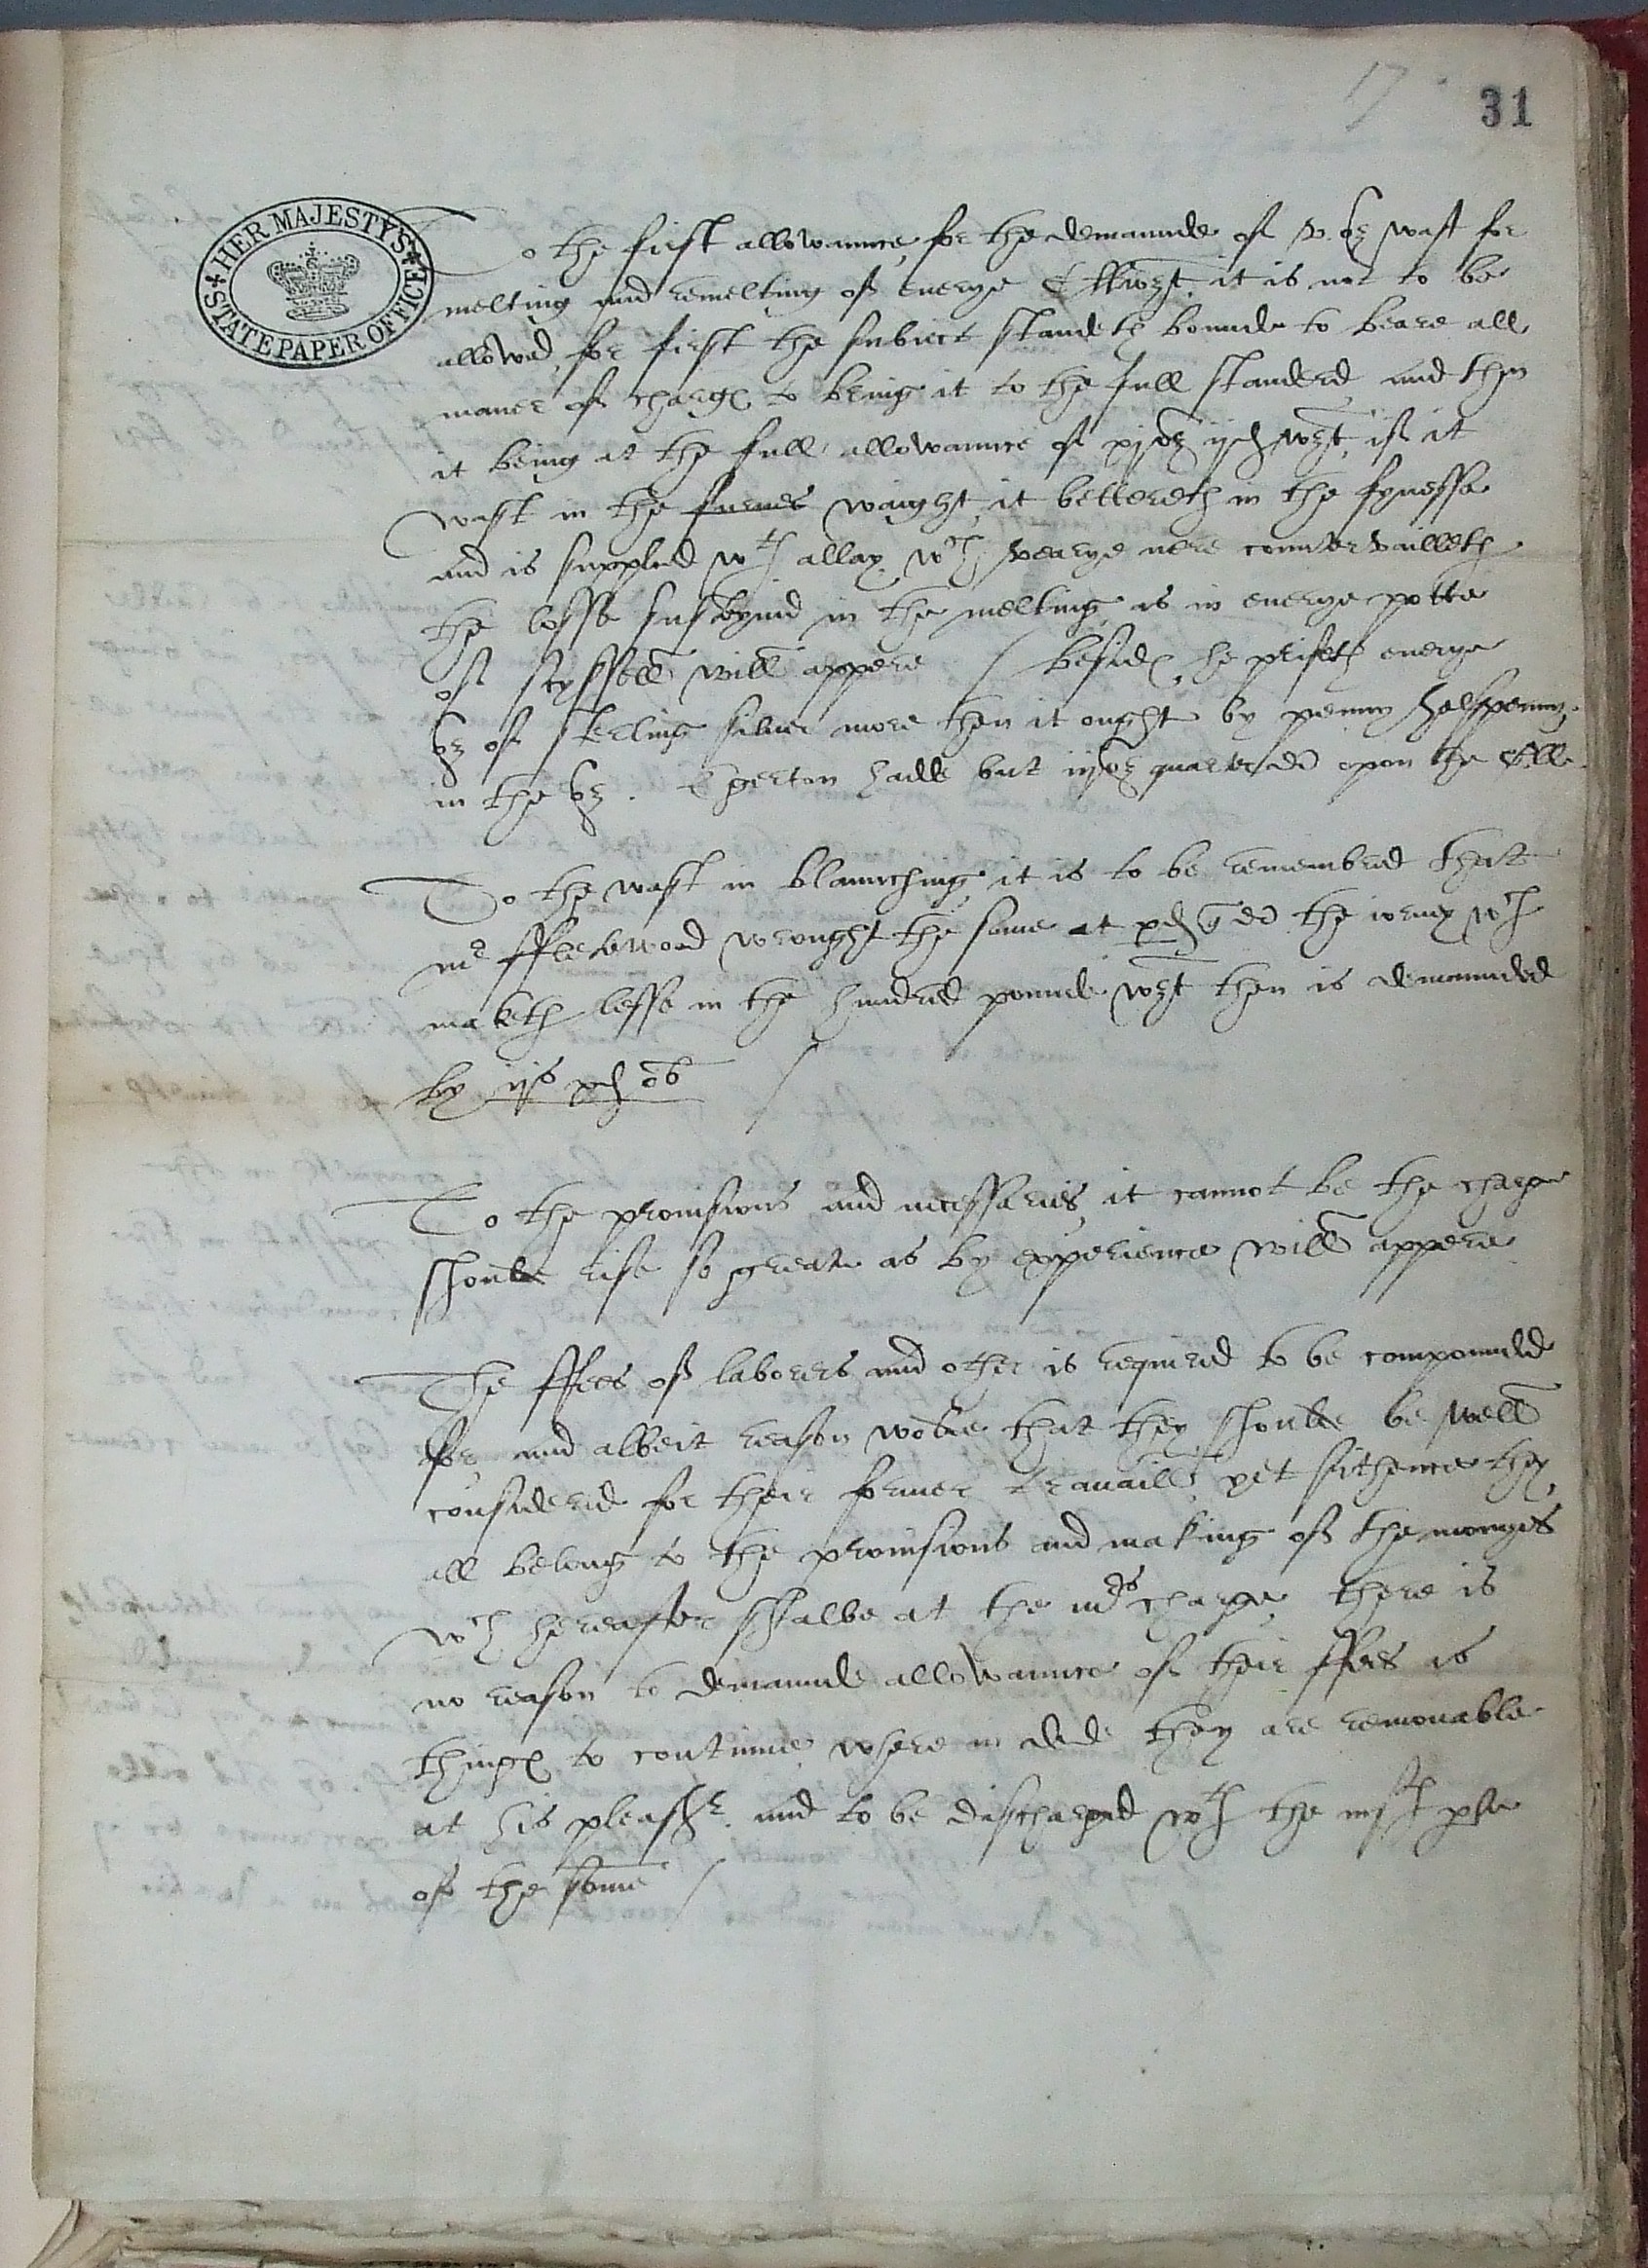 17
31
HER MAJESTYS STATE PAPER OFFICE
To the first allowaunce, for the demaunde of v. oz wast for
melting and remelting of euerye C ll wzt, it is not to be
allowed, for first the subiect standeth bounde to beare all
maner of charges to bring it to the full standerd and then
it being at the full allowaunce of xj oz ij d wzt, if it
wast in the furnes waight, it bettereth in the fynesse
and is supplied wth allay. wch verye nere countervailleth
the losse susteyned in the melting, as in euerye potte
of scyssell will appere / besides, he priseth euerye
oz of sterling siluer more then it ought by penny halfpenny
in the oz. Egerton hadde but iij oz quarter di upon the C ll.
To the wast in blaunching, it is to be remembred that
mr Fleetwood wrought the same at the iorney wch
maketh lesse in the hundred pounde wzt then is demaunded
by ijs xd ob /
To the prouisions and necessaries, it cannot be the charge
shoulde rise so greate as by experience will appere
The ffees of laborers and other is required to be compounded
for, and albeit reason wolde that they shoulde be well
considered for their former travaill, yet sithence they
all belong to the prouisions and making of the moneyes
wch hereafter shalbe at the mrs charge, there is
no reason to demaunde allowaunce of their ffees as
thinges to continue where in dede they are remouable
at his pleasure. and to be discharged wth the
of the same /